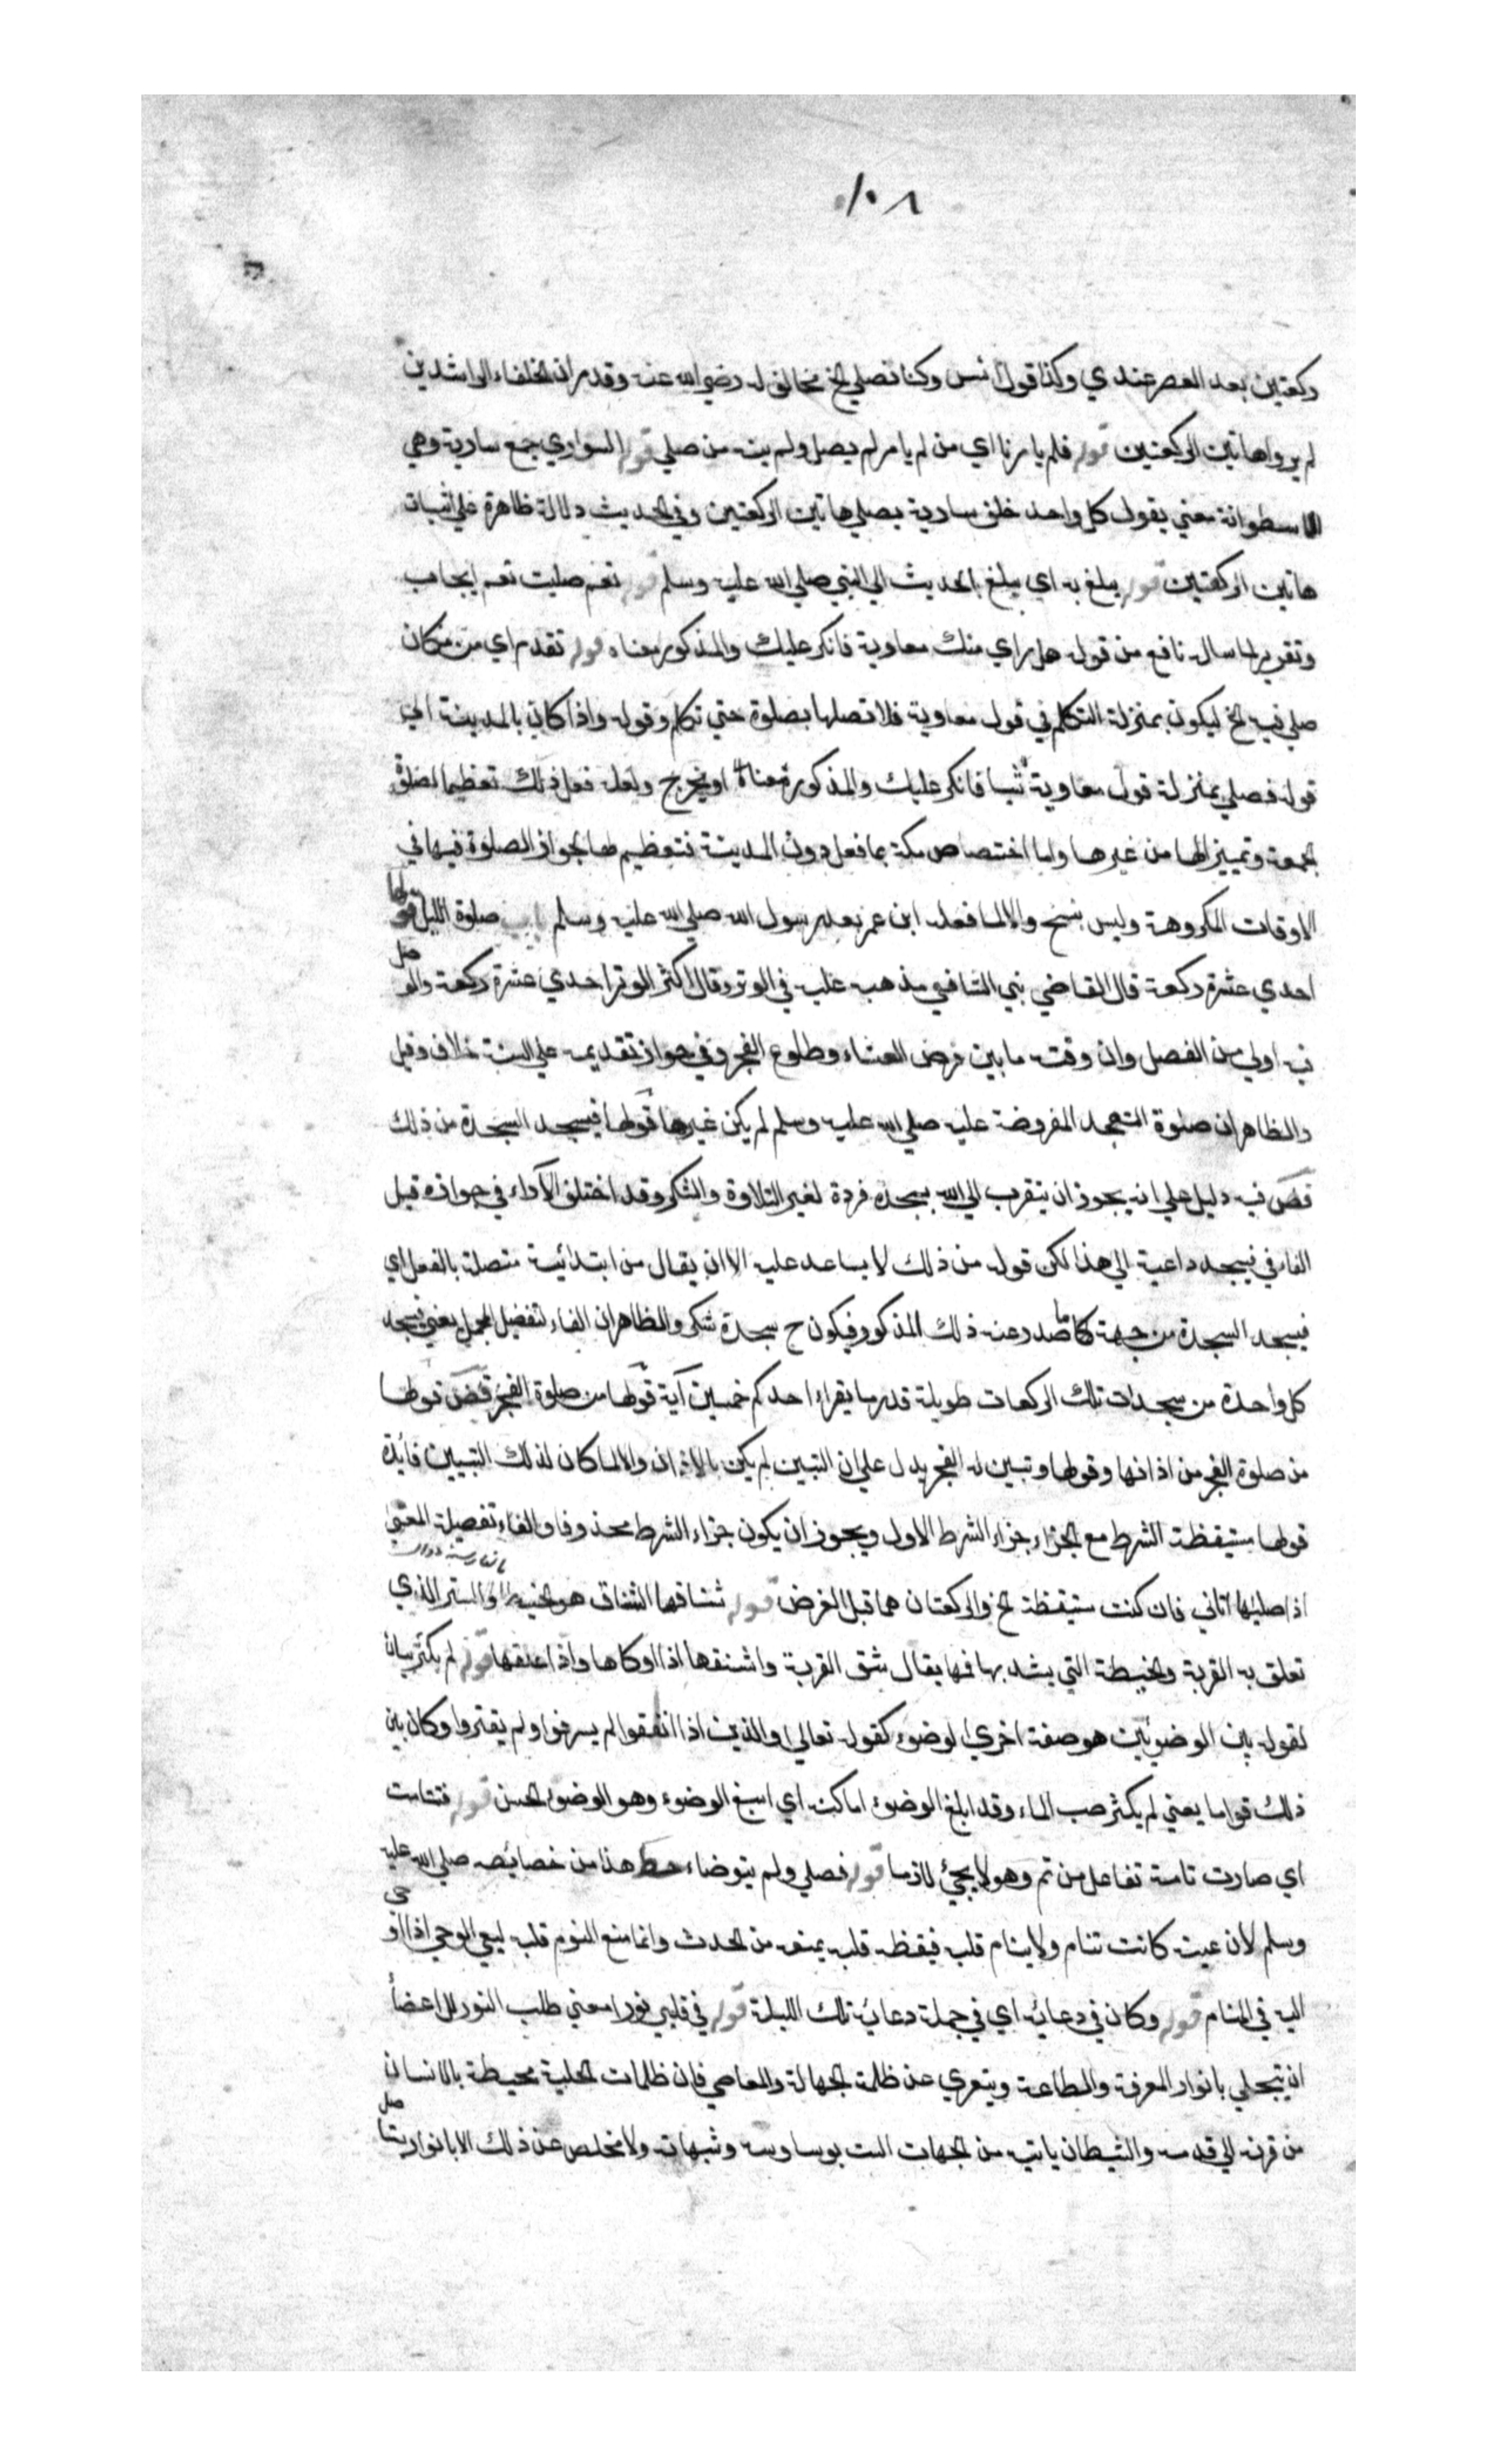 ١٠٨
ركعتين بعد العصر عندي وكذا قول انس وكنا نصلي الخ مخالف له رضي الله عنه وقد مر ان الخلفاء الراشدين
لم يرواهاتين الركعتين قوله فلم يامرنا اي من لم يامر لم يصل ولم ينه من صلي قوله السواري جمع سارية وهي
الاسطوانة معني يقول كل واحد خلف سارية يصلي هاتين الركعتين وفي الحديث دلالة ظاهرة علي اثبات
هاتين الركعتين قوله يبلغ به اي يبلغ الحديث الي النبي صلي الله عليه وسلم قوله نعم صليت نعم ايجاب
وتقرير لما سال نافع من قوله هل راي منك معاوية فانكر عليك والمذكور معناه قوله تقدم اي من مكان
صلي فيه الخ ليكون بمنزلة التكلم في قول معاوية فلا تصلها بصلوة حتي تكلم وقوله واذا كان بالمدينة الي
قوله فصلي بمنزلة قول معاوية شيا فانكر عليك والمذكور معناه او يخرج ولعله فعل ذلك تعظيما لصلوة
الجمعة وتمييزا لها من غيرها واما اختصاص مكة بما فعل دون المدينة فتعظيم لها لجواز الصلوة فيها في
الاوقات المكروهة وليس بنسخ والا لما فعله ابن عمر بعد رسول الله صلي الله عليه وسلم باب صلوة الليل قولها
احدي عشرة ركعة قال القاضي بني الشافعي مذهبه عليه في الوتر وقال اكثر الوتر احدي عشرة ركعة والوصل
فيه اولي من الفصل وان وقته ما بين فرض العشاء وطلوع الفجر وفي جواز تقديمه علي السنة خلاف وقيل
والظاهر ان صلوة التهجد المفروضة عليه صلي الله عليه وسلم لم يكن غيرها قولها فيسجد السجدة من ذلك
قض فيه دليل علي انه يجوز ان يتقرب الي الله بسجدة فردة لغير التلاوة والشكر وقد اختلف الآراء في جوازه قيل
الفاء في فيسجد داعية الي هذا لكن قوله من ذلك لا يساعد عليه الا ان يقال من ابتدائية متصلة بالفعل اي
فيسجد السجدة من جهة ما صدر عنه ذلك المذكور فيكون ح سجدة شكر والظاهر ان الفاء لتفصيل المجمل يعني فيسجد
كل واحدة من سجدات تلك الركعات طويلة قدر ما يقراء احدكم خمسين آية قولها من صلوة الفجر قض قولها
من صلوة الفجر من اذانها وقولها وتبين له الفجر يدل علي ان التبين لم يكن بالاذان والا لما كان لذلك التبيين فائدة
قولها مستيقظة الشرط مع الجزاء جزاء الشرط الاول ويجوز ان يكون جزاء الشرط محذوفا والفاء تفصيلية المعني
اذا صليها اتاني فان كنت مستيقظة الخ والركعتان هما قبل الفرض قوله شناقها الشناق هو الخيط والسير الذي
تعلق به القربة والخيطة التي يشد بها فمها يقال شنق القربة واشنقها اذا اوكاها واذا علقها قوله لم يكثر بيان
لقوله بين الوضوئين هو صفة اخري لوضوء كقوله تعالي والذين اذا انفقوا لم يسرفوا ولم يقتروا وكان بين
ذلك قواما يعني لم يكثر صب الماء وقد ابلغ الوضوء اماكنه اي اسبغ الوضوء وهو الوضوء الحسن قوله فتتامت
اي صارت تامة تفاعل من تم وهو لا يجئ لازما قوله فصلي ولم يتوضاء حط هذا من خصائصه صلي الله عليه
وسلم لان عينه كانت تنام ولا ينام قلبه فيقظه قلبه يمنعه من الحدث وانما منع النوم قلبه ليعي الوحي اذا اوحي
اليه في المنام قوله وكان في دعائه اي في جملة دعائه تلك الليلة قوله في قلبي نورا معني طلب النور للاعضاء
ان يتحلي بانوار المعرفة والطاعة ويتعري عن ظلمة الجهالة والمعاصي فان ظلمات الجبلية محيطة بالانسان
من قرنه الي قدمه والشيطان ياتيه من الجهات الست بوساوسه وشبهاته ولا مخلص عن ذلك الا بانوار